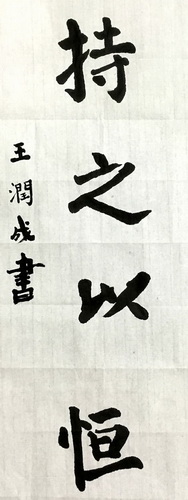 持之以恒
王潤成書